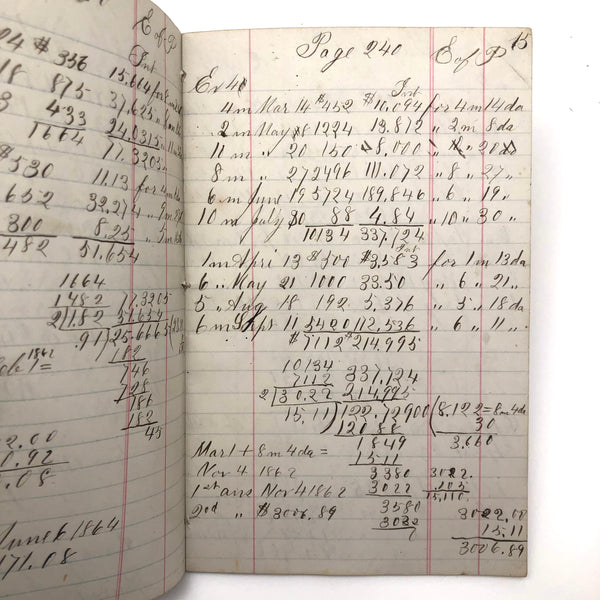 E of P
Int
24 $ 356 15.664 for 8
18 875 37.625
3 433 24.0315
1664 77.3205
$530 11.13 for 4 m
652 32.274
300 8.25
482 51.654
1664
1482 77.3205
2)182 51.654
91)25.6665(
182
746
728
186
182
45
1862
2.00
0.92
1.08
June 6 1864
171.08
15
Page 240 E of P
Ex 4
Int
4 m Mar 14 $452 $10.094 for 4 m 14 da
2 m May 8 1224 13.872 " 2 m 8 da
11 m " 20 150 8.000 " " 20
8 m " 27 2496 111.072 " 8 " 27 "
6 m June 19 5724 189.846 " 6 " 19 "
10 m July 30 88 4.84 " 10 " 30 "
10134 337.724
Int
1 m Apri 13 $500 $3.583 for 1 m 13 da
6 " May 21 1000 33.50 " 6 " 21 "
5 " Aug 18 192 5.376 " 5 " 18 da
6 m Sept 11 5420 112.536 " 6 " 11 "
$7112 $214.995
10134
7112 337.724
2)30.22 214.995
15.11)122.72900(8.122 = 8 m 4 da
120 88 30
1849 3.660
Mar 1 + 8 m 4 da = 1511
Nov 4 1862 3380 3022.
1st ans Nov 4 1862 3022 .105
15,110.
2nd " $3006.89 3580 3022.00
3022 15.11
7 3006.89